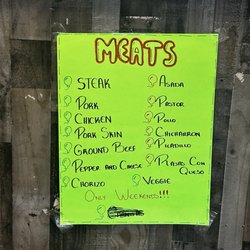 MEATS
STEAK
PORK
CHICKEN
PORK SKIN
GROUND BEEF
PEPPER AND CHEESE
CHORIZO
ASADA
PASTOR
POLLO
CHICHARRON
PICADILLO
RAJAS CON QUESO
VEGGIE
ONLY WEEKENDS!!!